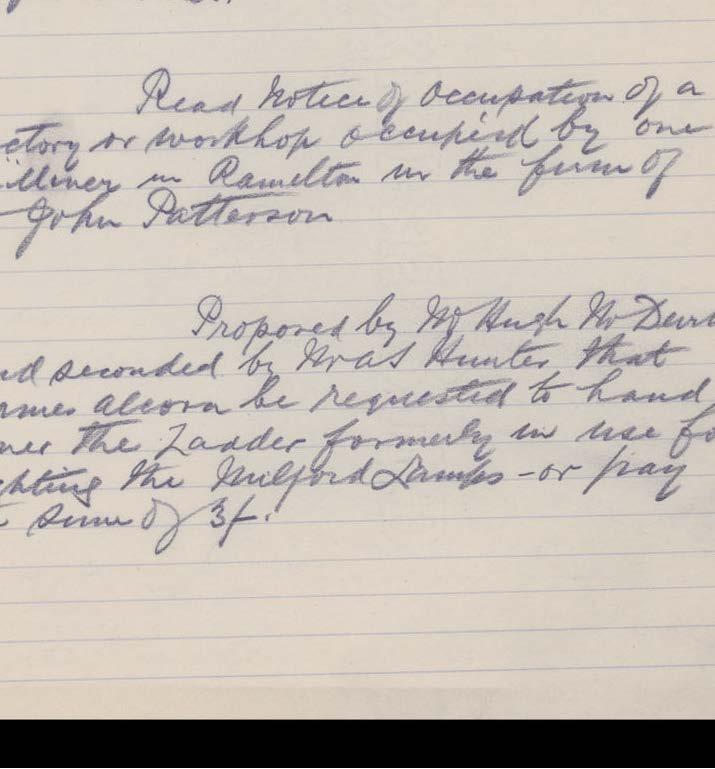 Read Notice of Occupation of a
ctory or workhop occupied by one
illiner in Ramelton in the firm of
John Patterson
Proposed by Mr Hugh McDevi
nd seconded by Hunter that
ames alcorn be requested to hand
over the Ladder formerly in use fo
ghting the Milford Lamps - or pay
sum of 3/-.